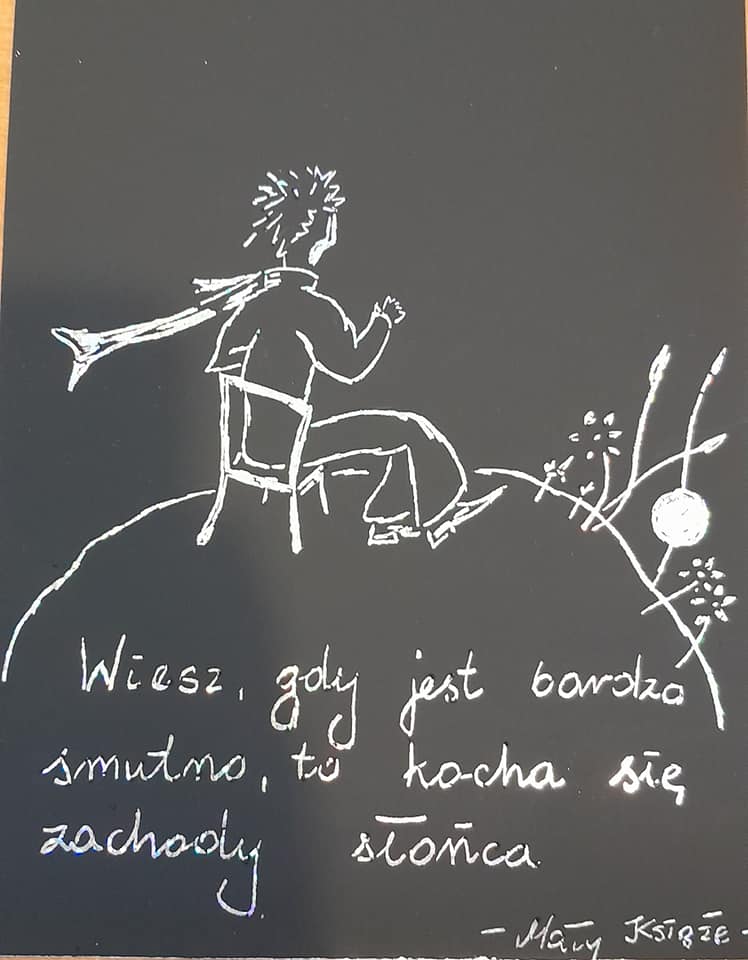 Wiesz, gdy jest bardzo
smutno, to kocha się
zachody słońca.
- Mały Książę -